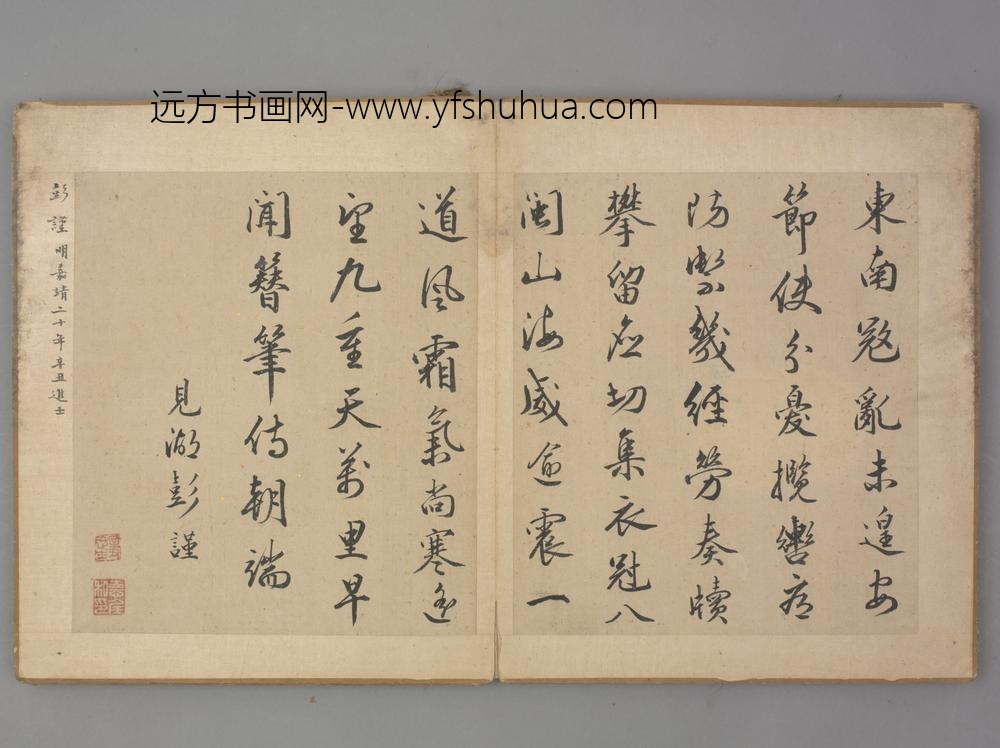 远方书画网-www.yfshuhua.com
東南寇亂未遑安
節使分憂攬轡
防禦幾經勞奏牘
攀留應切集衣冠八
閩山海威逾震一
道風霜氣尚寒遙
望九重天萬里早
聞簪筆侍朝端
見湖彭謹
彭謹明嘉靖二十年辛丑進士